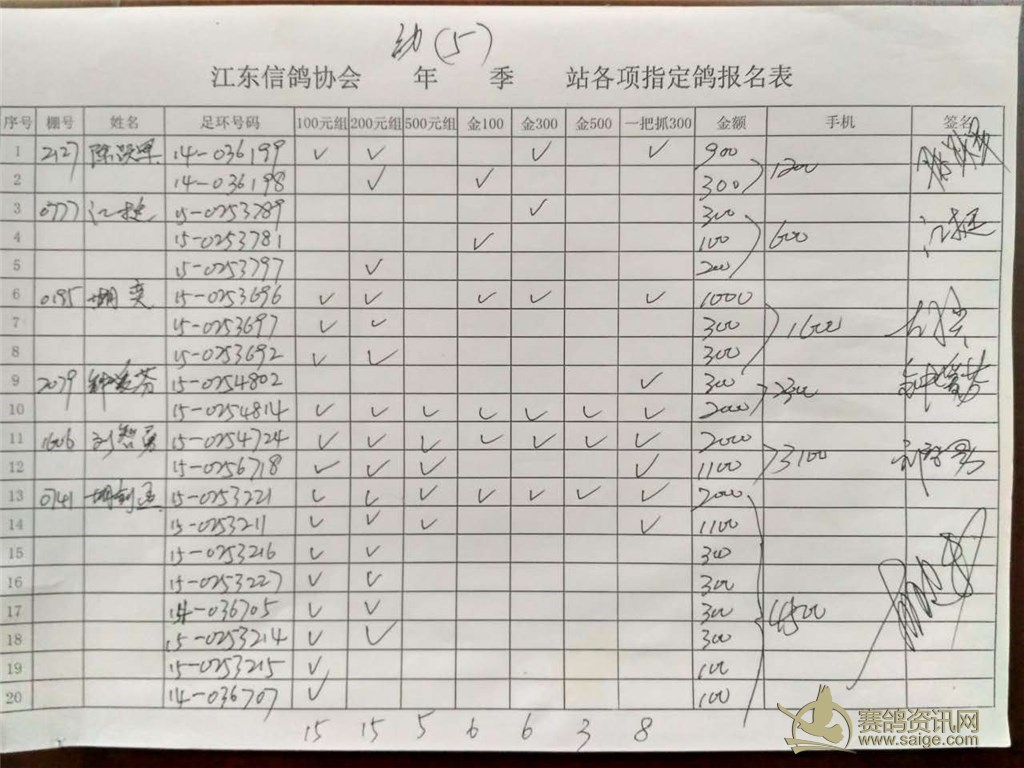 幼(5)
江东信鸽协会 年 季 站各项指定鸽报名表
序号 棚号 姓名 足环号码 100元组 200元组 500元组 金100 金300 金500 一把抓300 金额 手机 签名
1 2127 14-036199 ✓ ✓ ✓ ✓ 900
1200
2 14-036198 ✓ ✓ 300
3 0777 江挺 15-0253789 ✓ 300 江挺
4 15-0253781 ✓ 100 600
5 15-0253797 ✓ 200
6 0195 胡奕 15-0253696 ✓ ✓ ✓ ✓ ✓ 1000
7 15-0253697 ✓ ✓ 300 1600
8 15-0253692 ✓ ✓ 300
9 2079 15-0254802 ✓ 300
2300
10 15-0254814 ✓ ✓ ✓ ✓ ✓ ✓ ✓ 2000
11 1606 刘智勇 15-0254724 ✓ ✓ ✓ ✓ ✓ ✓ ✓ 2000
3100
12 15-0256718 ✓ ✓ ✓ ✓ 1100
13 0741 15-0253221 ✓ ✓ ✓ ✓ ✓ ✓ ✓ 2000
14 15-0253211 ✓ ✓ ✓ ✓ 1100
15 15-0253216 ✓ ✓ 300
16 15-0253227 ✓ ✓ 300
17 14-036705 ✓ ✓ 300 4500
18 15-0253214 ✓ ✓ 300
19 15-0253215 ✓ 100
20 14-036707 ✓ 100
15 15 5 6 6 3 8
赛鸽资讯网
www.saige.com